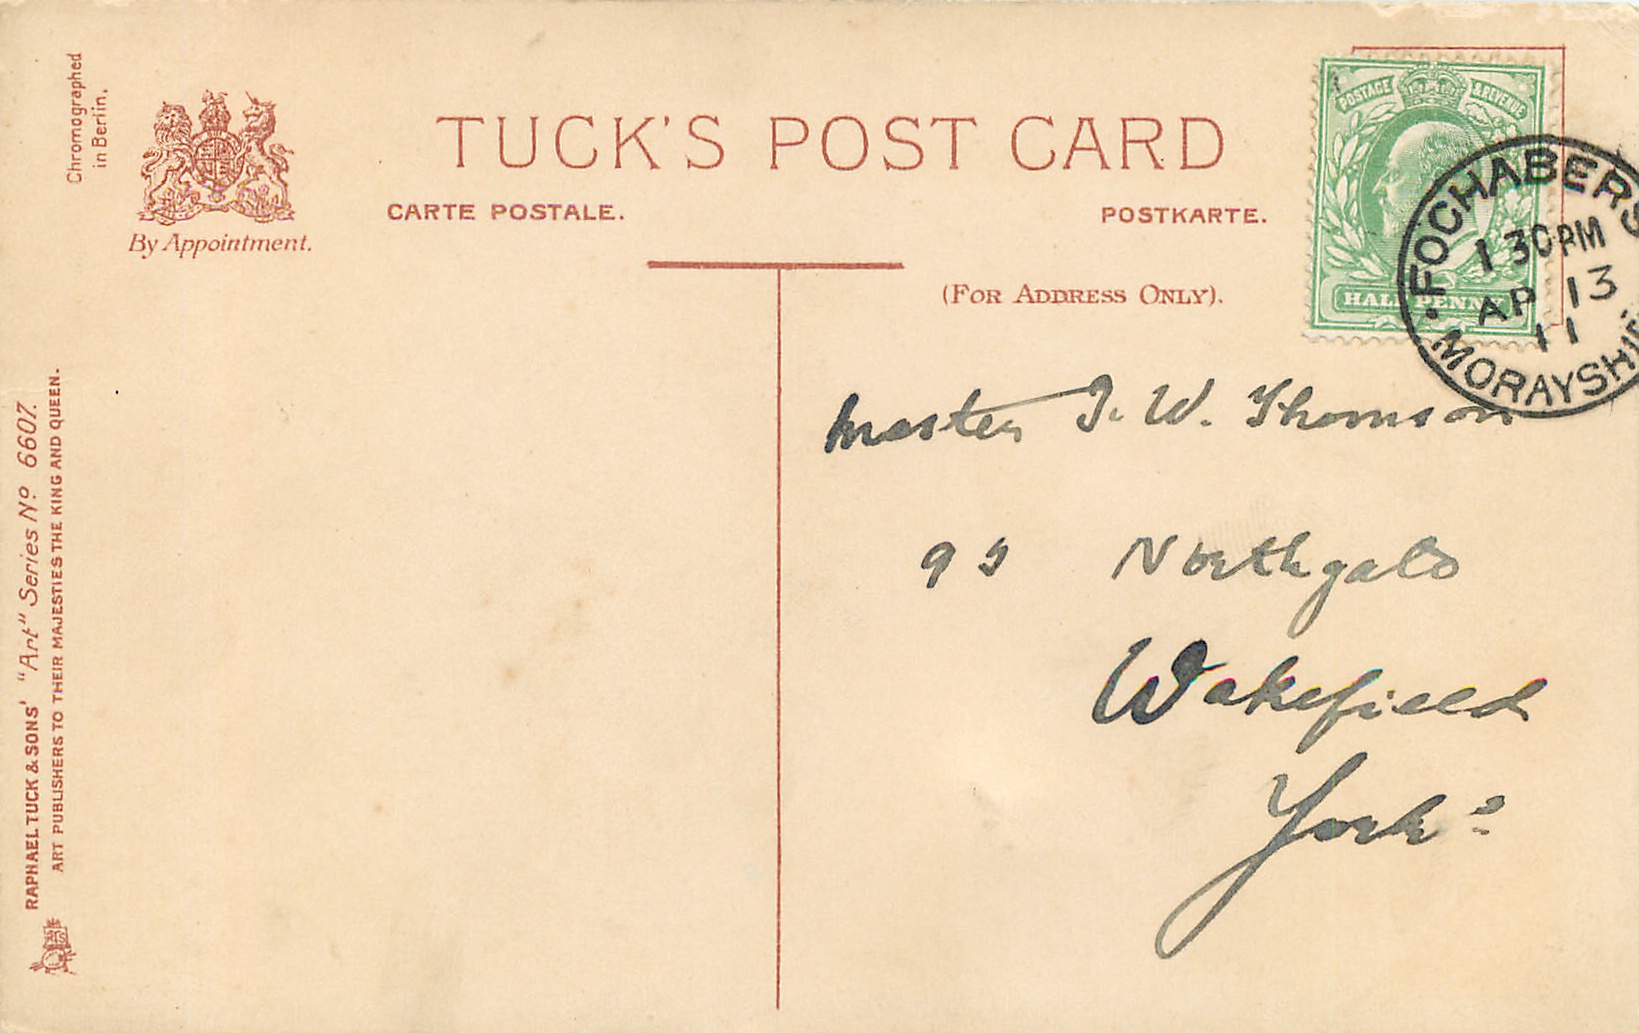 Chromographed
in Berlin.
By Appointment.
TUCK'S POST CARD
CARTE POSTALE.
POSTKARTE.
(FOR ADDRESS ONLY).
POSTAGE & REVENUE
HALF PENNY
FOCHABERS
1 30PM
AP 13
11
MORAYSHIRE
Master J. W. Thomson
99 Northgate
Wakefield
Yorks
RAPHAEL TUCK & SONS' "Art" Series No 6607.
ART PUBLISHERS TO THEIR MAJESTIES THE KING AND QUEEN.